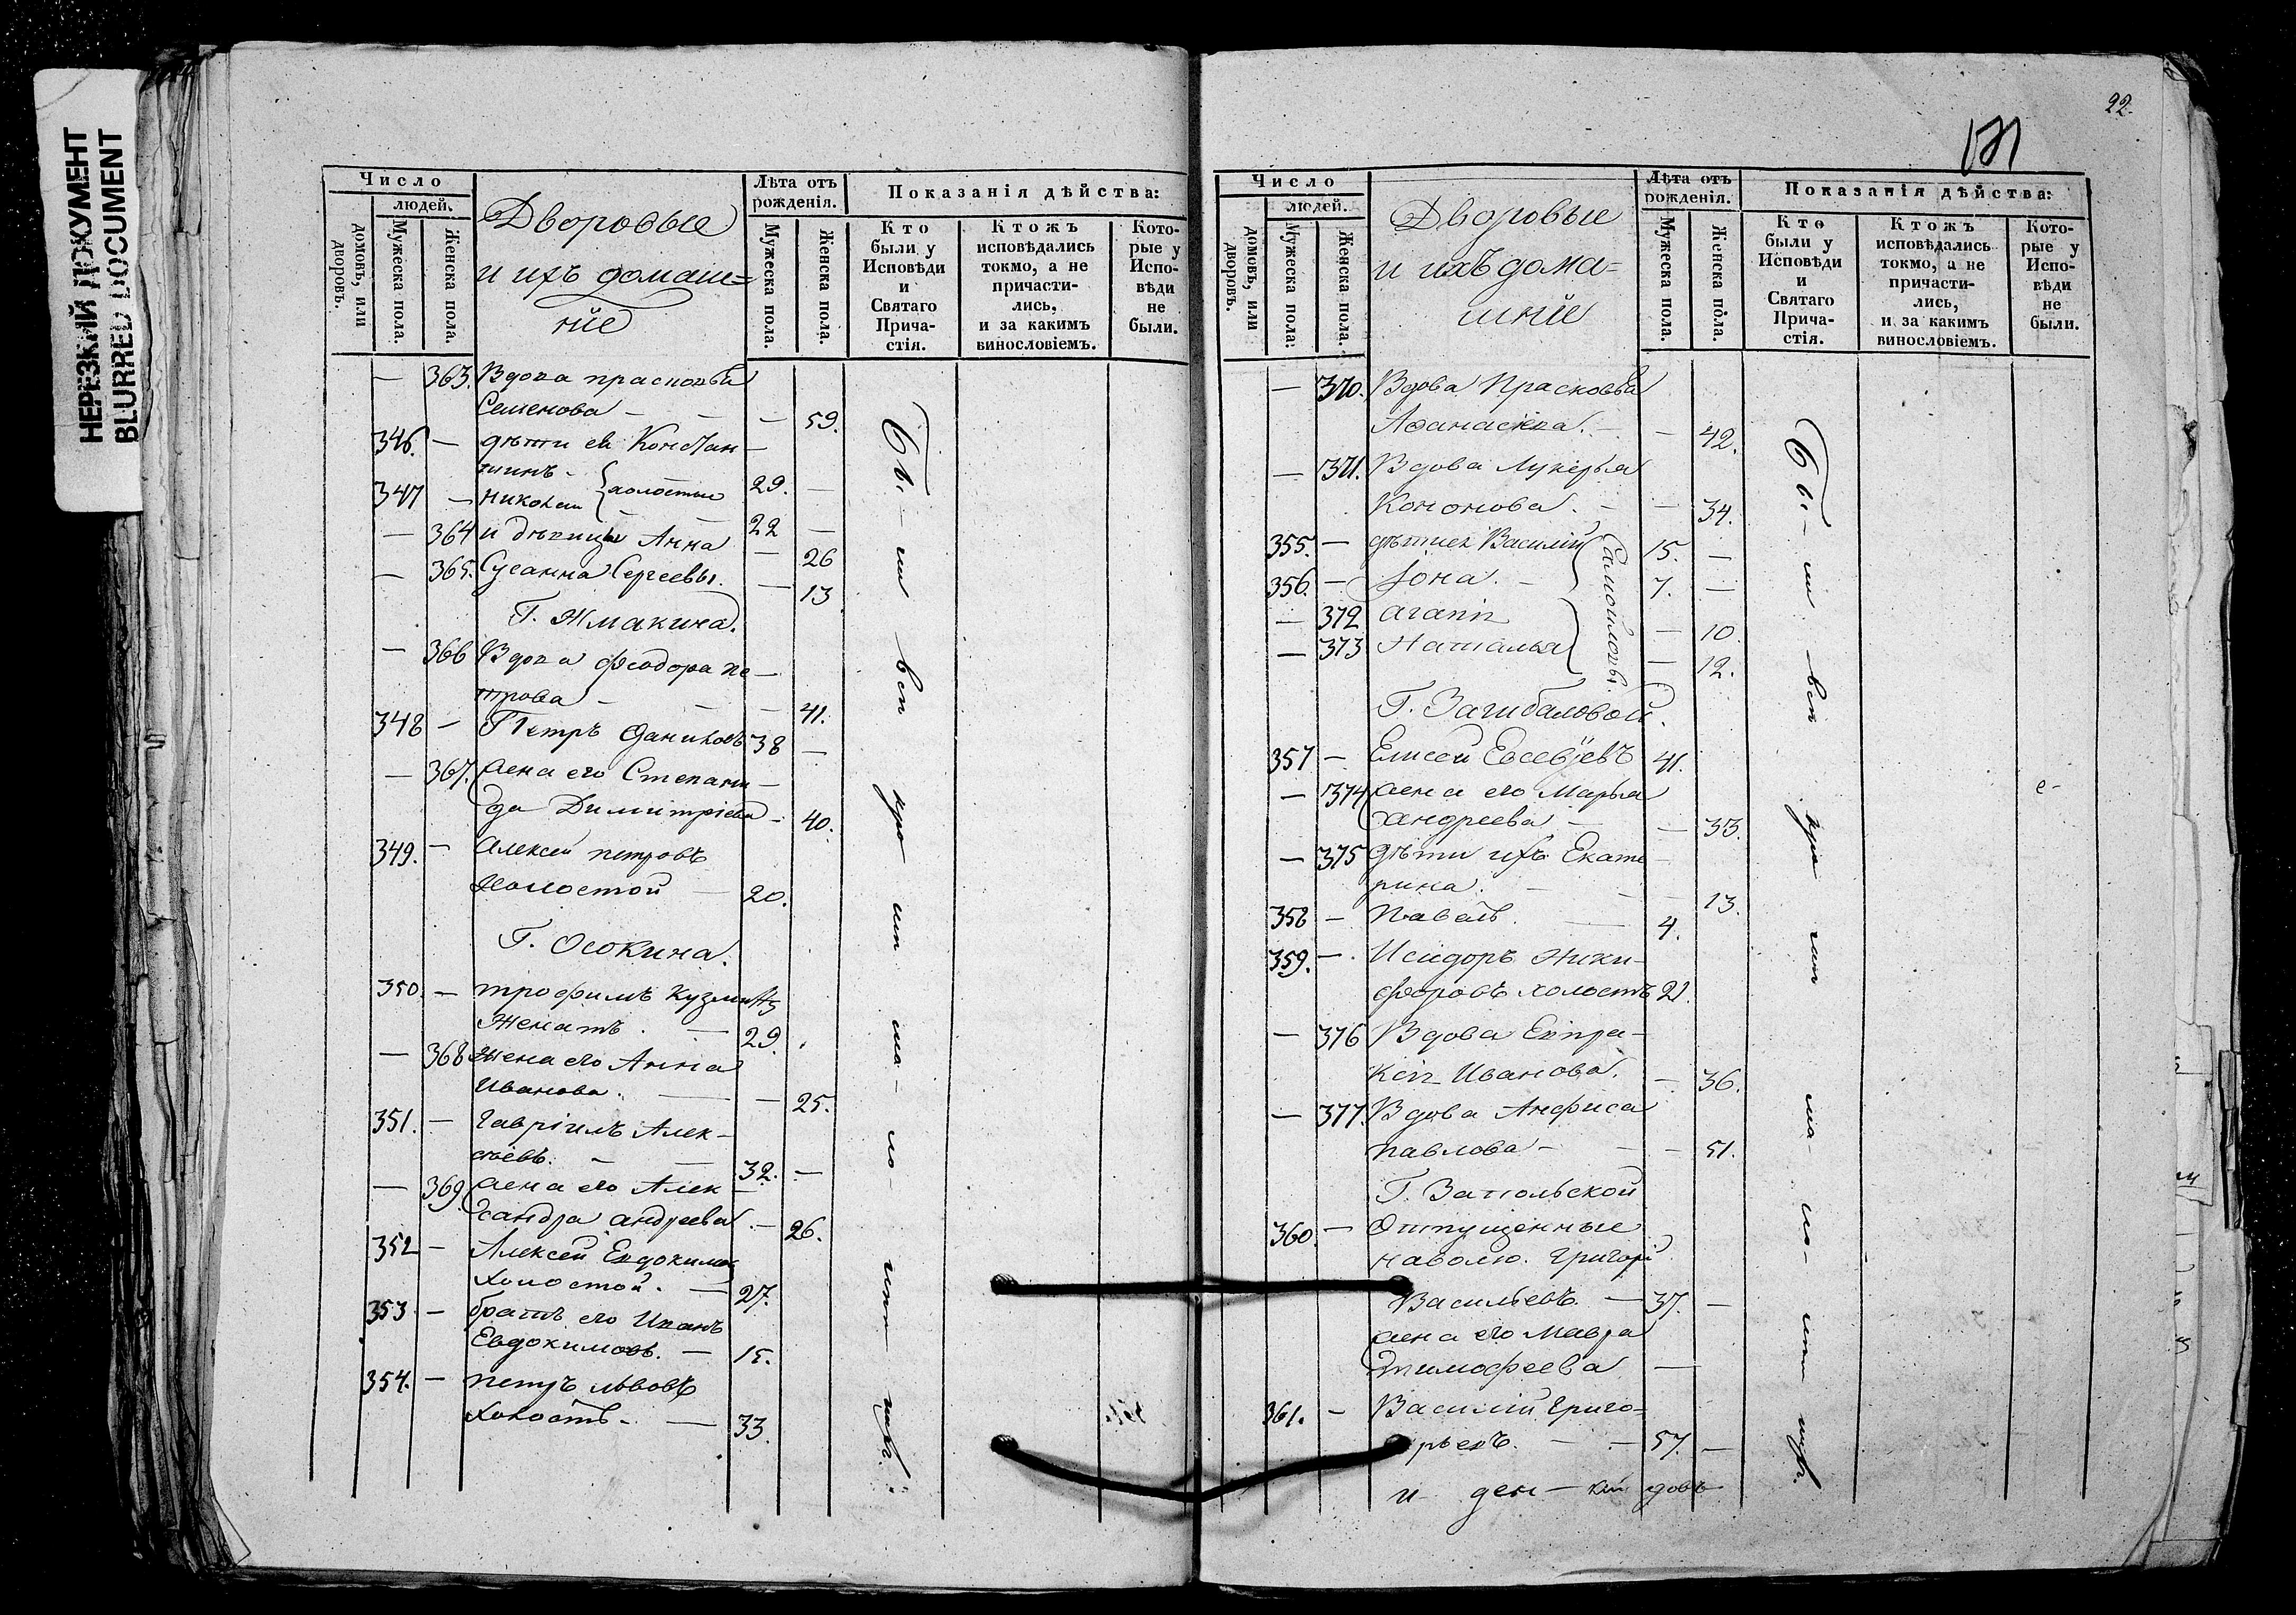 НЕРЕЗКИЙ ДОКУМЕНТ
BLURRED DOCUMENT
Число
людей.
домовъ, или дворовъ.
Мужеска пола.
Женска пола.
Дворовые
и ихъ домаш=
ніе
Лѣта отъ
рожденія.
Мужеска пола.
Женска пола.
Показанія дѣйства:
Кто
были у
Исповѣди
и
Святаго
Прича-
стія.
Ктожъ
исповѣдались
токмо, а не
причасти-
лись,
и за какимъ
винословіемъ.
Кото-
рые у
Испо-
вѣди
не
были.
— 363. Вдова Прасковья
Семенова — — — 59.
346. — дѣти ея Констан —
тинъ - 29. —
347 — Николай } холостые 22 —
— 364 и дѣвицы Анна — 26
— 365. Сусанна Сергеевы. — 13
Г. Жмакина.
— 366 Вдова Феодора Пе —
трова — — — 41.
348 — Петръ Даниловъ 38 —
— 367. жена его Степани —
да Димитріева - 40.
349. — Алексей Петровъ
Холостой — 20.
Г. Осокина.
350. — Трофимъ Кузминъ
Женатъ. — 29.
— 368 жена его Анна
Иванова. — — 25.
351. — Гавріилъ Алек —
сѣевъ. — — 32. —
— 369. жена его Алек —
сандра Андреева. — 26.
352 — Алексей Евдокимов
Холостой. — 27.
353 — братъ его Иванъ
Евдокимовъ. — 15.
354. — Петръ Львовъ
Холостъ - — 33.
Бы - ли вси
22.
Число
людей.
домовъ, или дворовъ.
Мужеска пола.
Женска пола.
Дворовые
и ихъ дома=
шніе
Лѣта отъ
рожденія.
Мужеска пола.
Женска пола.
Показанія дѣйства:
Кто
были у
Исповѣди
и
Святаго
Прича-
стія.
Ктожъ
исповѣдались
токмо, а не
причасти-
лись,
и за какимъ
винословіемъ.
Кото-
рые у
Испо-
вѣди
не
были.
— 370. Вдова Прасковья
Афанасіева. — — 42.
— 371. Вдова Лукерья
Кононова. — — 34.
355. — дѣти ея Василій 15. —
356. — Іона. — 7. —
— 372 Агапія — 10.
— 373 Наталья — 12.
Самойловы.
Г. Загибаловой.
357 — Елисей Евсевіевъ 41.
— 374 жена его Марья
Андреева — — 33.
— 375 дѣти ихъ Екате —
рина. — — 13.
358 — Павелъ. — 4.
359. — Исидоръ Ники —
форовъ холостъ 21.
— 376 Вдова Евпра —
ксія Иванова. — 36.
— 377. Вдова Анфиса
Павлова — — — 51.
Г. Запольской
360. — Отпущенные
на волю. Григорій
Васильевъ. — 37. —
жена его Мавра
Тимофеева —
361. — Василій Григо=
рьевъ. — — 57. —
и ден —
Бы - ли вси